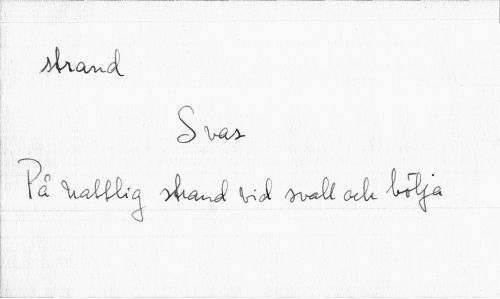 strand
Svas
På nattlig strand vid svall och bölja